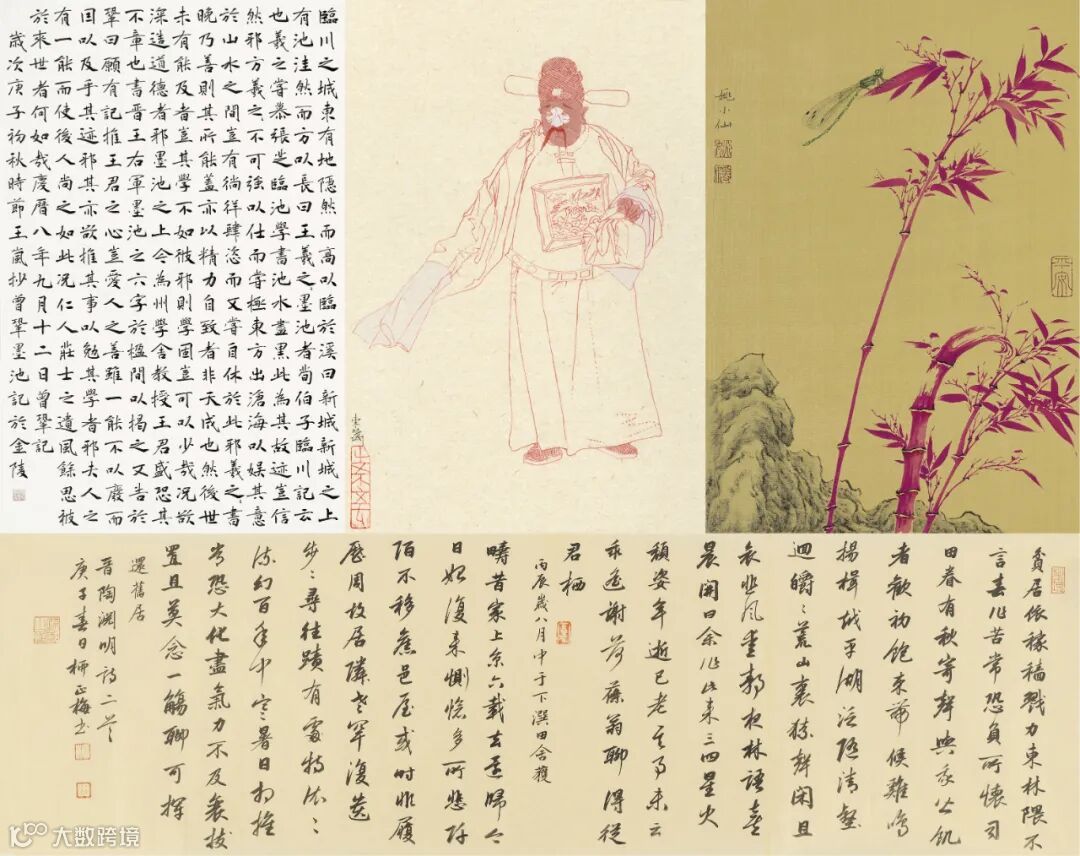 臨川之城東有地隱然而高以臨於溪曰新城新城之上
有池洼然而方以長曰王羲之之墨池者荀伯子臨川記云
也羲之嘗慕張芝臨池學書池水盡黑此為其故迹豈信
然邪方羲之之不可強以仕而嘗極東方出滄海以娛其意
於山水之間豈有徜徉肆恣而又嘗自休於此邪羲之之書
晚乃善則其所能蓋亦以精力自致者非天成也然後世
未有能及者豈其學不如彼邪則學固豈可以少哉況欲
深造道德者邪墨池之上今為州學舍教授王君盛恐其
不章也書晉王右軍墨池之六字於楹間以揭之又告於
鞏曰願有記推王君之心豈愛人之善雖一能不以廢而
因以及乎其迹邪其亦欲推其事以勉其學者邪夫人之
有一能而使後人尚之如此況仁人莊士之遺風餘思被
於來世者何如哉慶曆八年九月十二日曾鞏記
歲次庚子初秋時節王嵐抄曾鞏墨池記於金陵
姚小仙
平安
貧居依稼穡戮力東林隈不
言春作苦常恐負所懷司
田眷有秋寄聲與我諧飢
者歡初飽束帶候雞鳴
揚楫越平湖泛隨清壑
迴皭皭荒山裏猿聲閑且
哀悲風愛靜夜林鳥喜
晨開曰余作此來三四星火
頹姿年逝已老其事未云
乖遙謝荷蓧翁聊得從
君栖
丙辰歲八月中于下潠田舍穫
疇昔家上京六載去還歸今
日始復來惻愴多所悲阡
陌不移舊邑屋或時非履
歷周故居鄰老罕復遺
步步尋往蹟有處特依依
流幻百年中寒暑日相推
常恐大化盡氣力不及衰撥
置且莫念一觴聊可揮
還舊居
晉陶淵明詩二首
庚子春日正梅書
大数跨境